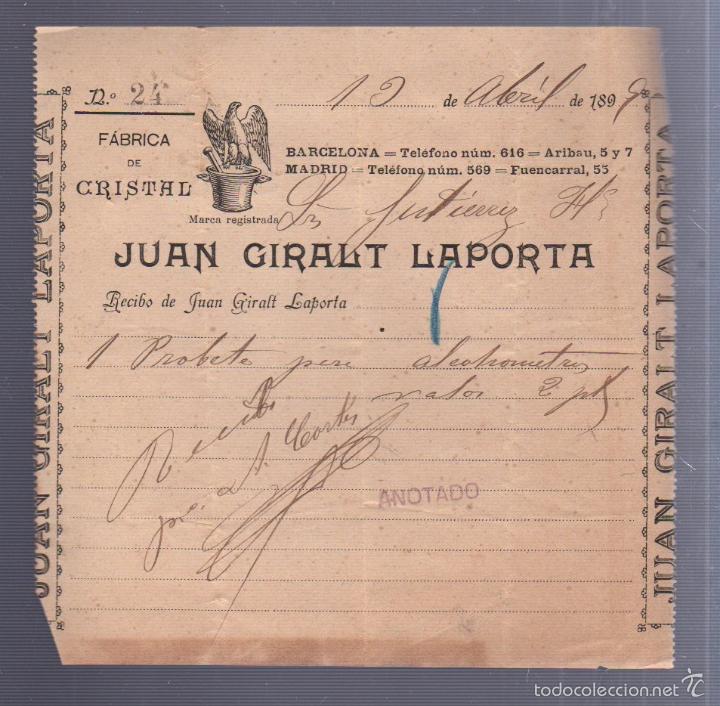 N.º 24
12 de Abril de 1899
FÁBRICA
DE
CRISTAL
Marca registrada
BARCELONA = Teléfono núm. 616 = Aribau, 5 y 7
MADRID = Teléfono núm. 569 = Fuencarral, 55
Gutiérrez
JUAN GIRALT LAPORTA
Recibo de Juan Giralt Laporta
1 Probeta para alcohometro
valor 2 pts
Recibí
A. Cortés
ANOTADO
JUAN GIRALT LAPORTA
JUAN GIRALT LAPORTA
todocoleccion.net